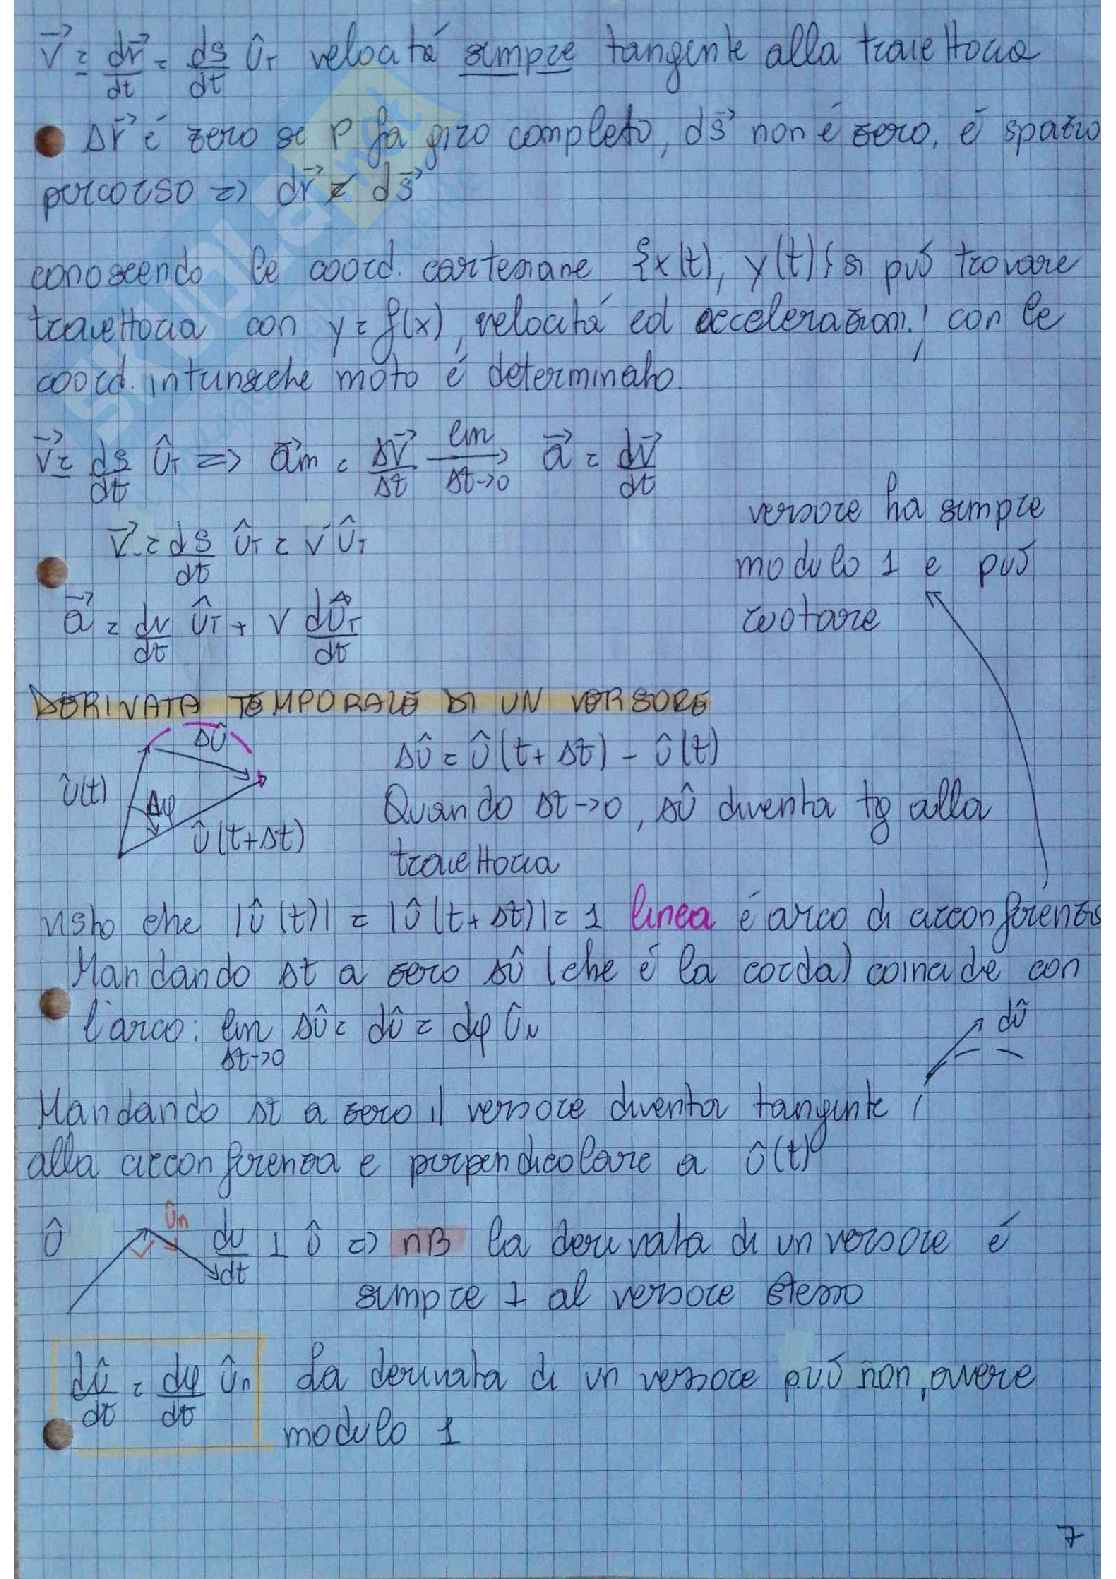 v⃗ = dr⃗/dt = ds/dt û_T velocità sempre tangente alla traiettoria
Δr⃗ é zero se P fa giro completo, ds⃗ non é zero, é spazio
percorso => dr⃗ ≠ ds⃗
conoscendo le coord. cartesiane {x(t), y(t)} si può trovare
traiettoria con y = f(x), velocità ed accelerazion.! con le
coord. intrinseche moto é determinato.
v⃗ = ds/dt û_T => a⃗m = Δv⃗/Δt lim Δt→0 a⃗ = dv⃗/dt
v⃗ = ds/dt û_T = v û_T
versore ha sempre
modulo 1 e può
ruotare
a⃗ = dv/dt û_T + v dû_T/dt
DERIVATA TEMPORALE DI UN VERSORE
Δû
û(t)
Δφ
û(t+Δt)
Δû = û(t+Δt) - û(t)
Quando Δt→0, Δû diventa tg alla
traiettoria
visto che |û(t)| = |û(t+Δt)| = 1 linea é arco di circonferenza
Mandando Δt a zero Δû (che é la corda) coincide con
l'arco: lim Δt→0 Δû = dû = dφ û_N
dû
Mandando Δt a zero il versore diventa tangente
alla circonferenza e perpendicolare a û(t)
û
û_n
du/dt ⊥ û => NB la derivata di un versore é
sempre ⊥ al versore stesso
dû/dt = dφ/dt û_n La derivata di un versore può non avere
modulo 1
7
SKUOLA.net